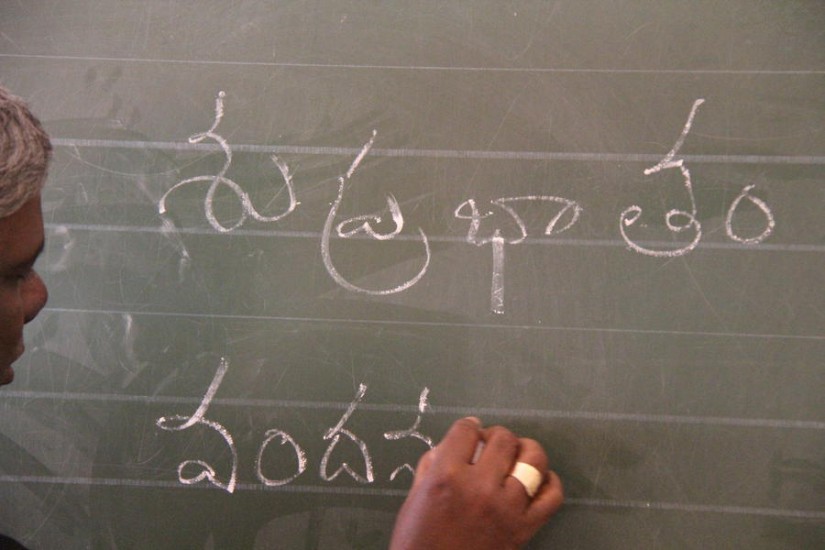 సుప్రభాతం
వందన